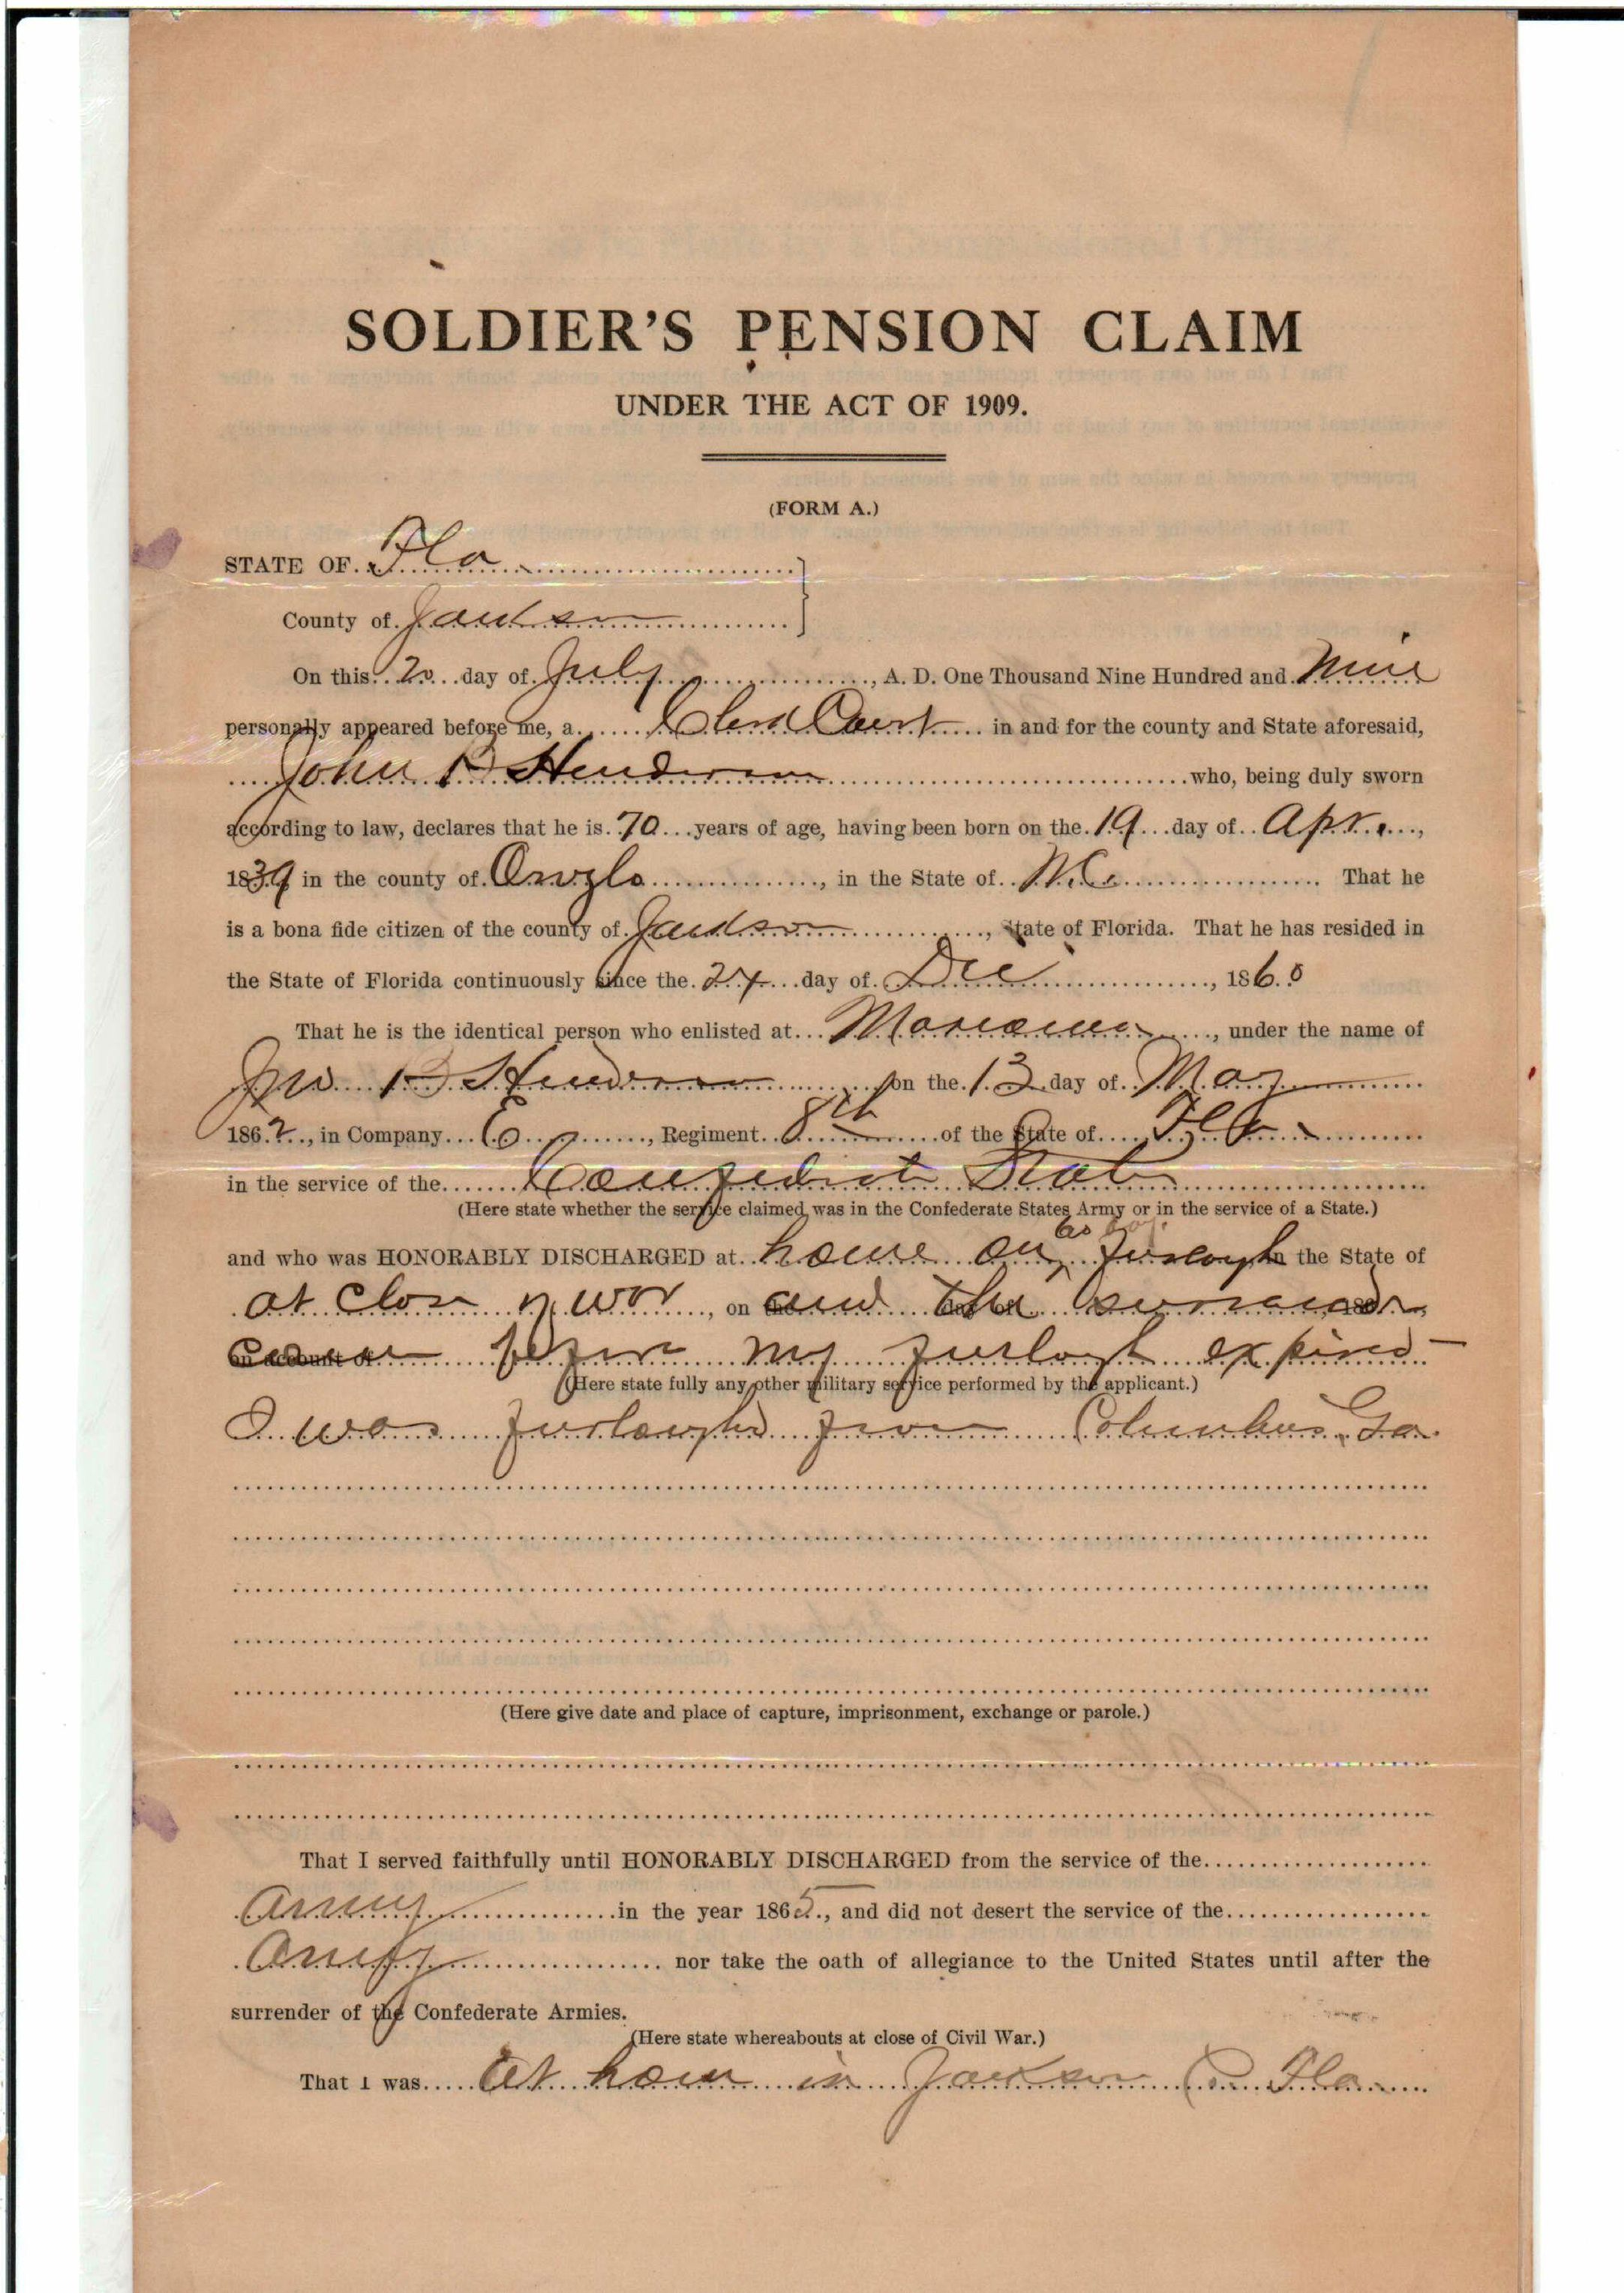 SOLDIER'S PENSION CLAIM
UNDER THE ACT OF 1909.
(FORM A.)
STATE OF Fla
County of Jackson
On this 20 day of July, A. D. One Thousand Nine Hundred and Nine
personally appeared before me, a Clerk Court in and for the county and State aforesaid,
John B Henderson who, being duly sworn
according to law, declares that he is 70 years of age, having been born on the 19 day of Apr.,
1839 in the county of Onslo, in the State of N.C. That he
is a bona fide citizen of the county of Jackson, State of Florida. That he has resided in
the State of Florida continuously since the 24 day of Dec, 1860
That he is the identical person who enlisted at Marianna, under the name of
Jno B Henderson on the 13 day of May
1862, in Company E, Regiment 8th of the State of Fla
in the service of the Confederate States
(Here state whether the service claimed was in the Confederate States Army or in the service of a State.)
and who was HONORABLY DISCHARGED at home on 60 day furlough in the State of
at close of war, on and the surrender
came before my furlough expired
(Here state fully any other military service performed by the applicant.)
I was furloughed from Columbus, Ga.
(Here give date and place of capture, imprisonment, exchange or parole.)
That I served faithfully until HONORABLY DISCHARGED from the service of the
Army in the year 1865, and did not desert the service of the
Army nor take the oath of allegiance to the United States until after the
surrender of the Confederate Armies.
(Here state whereabouts at close of Civil War.)
That I was At home in Jackson Co Fla